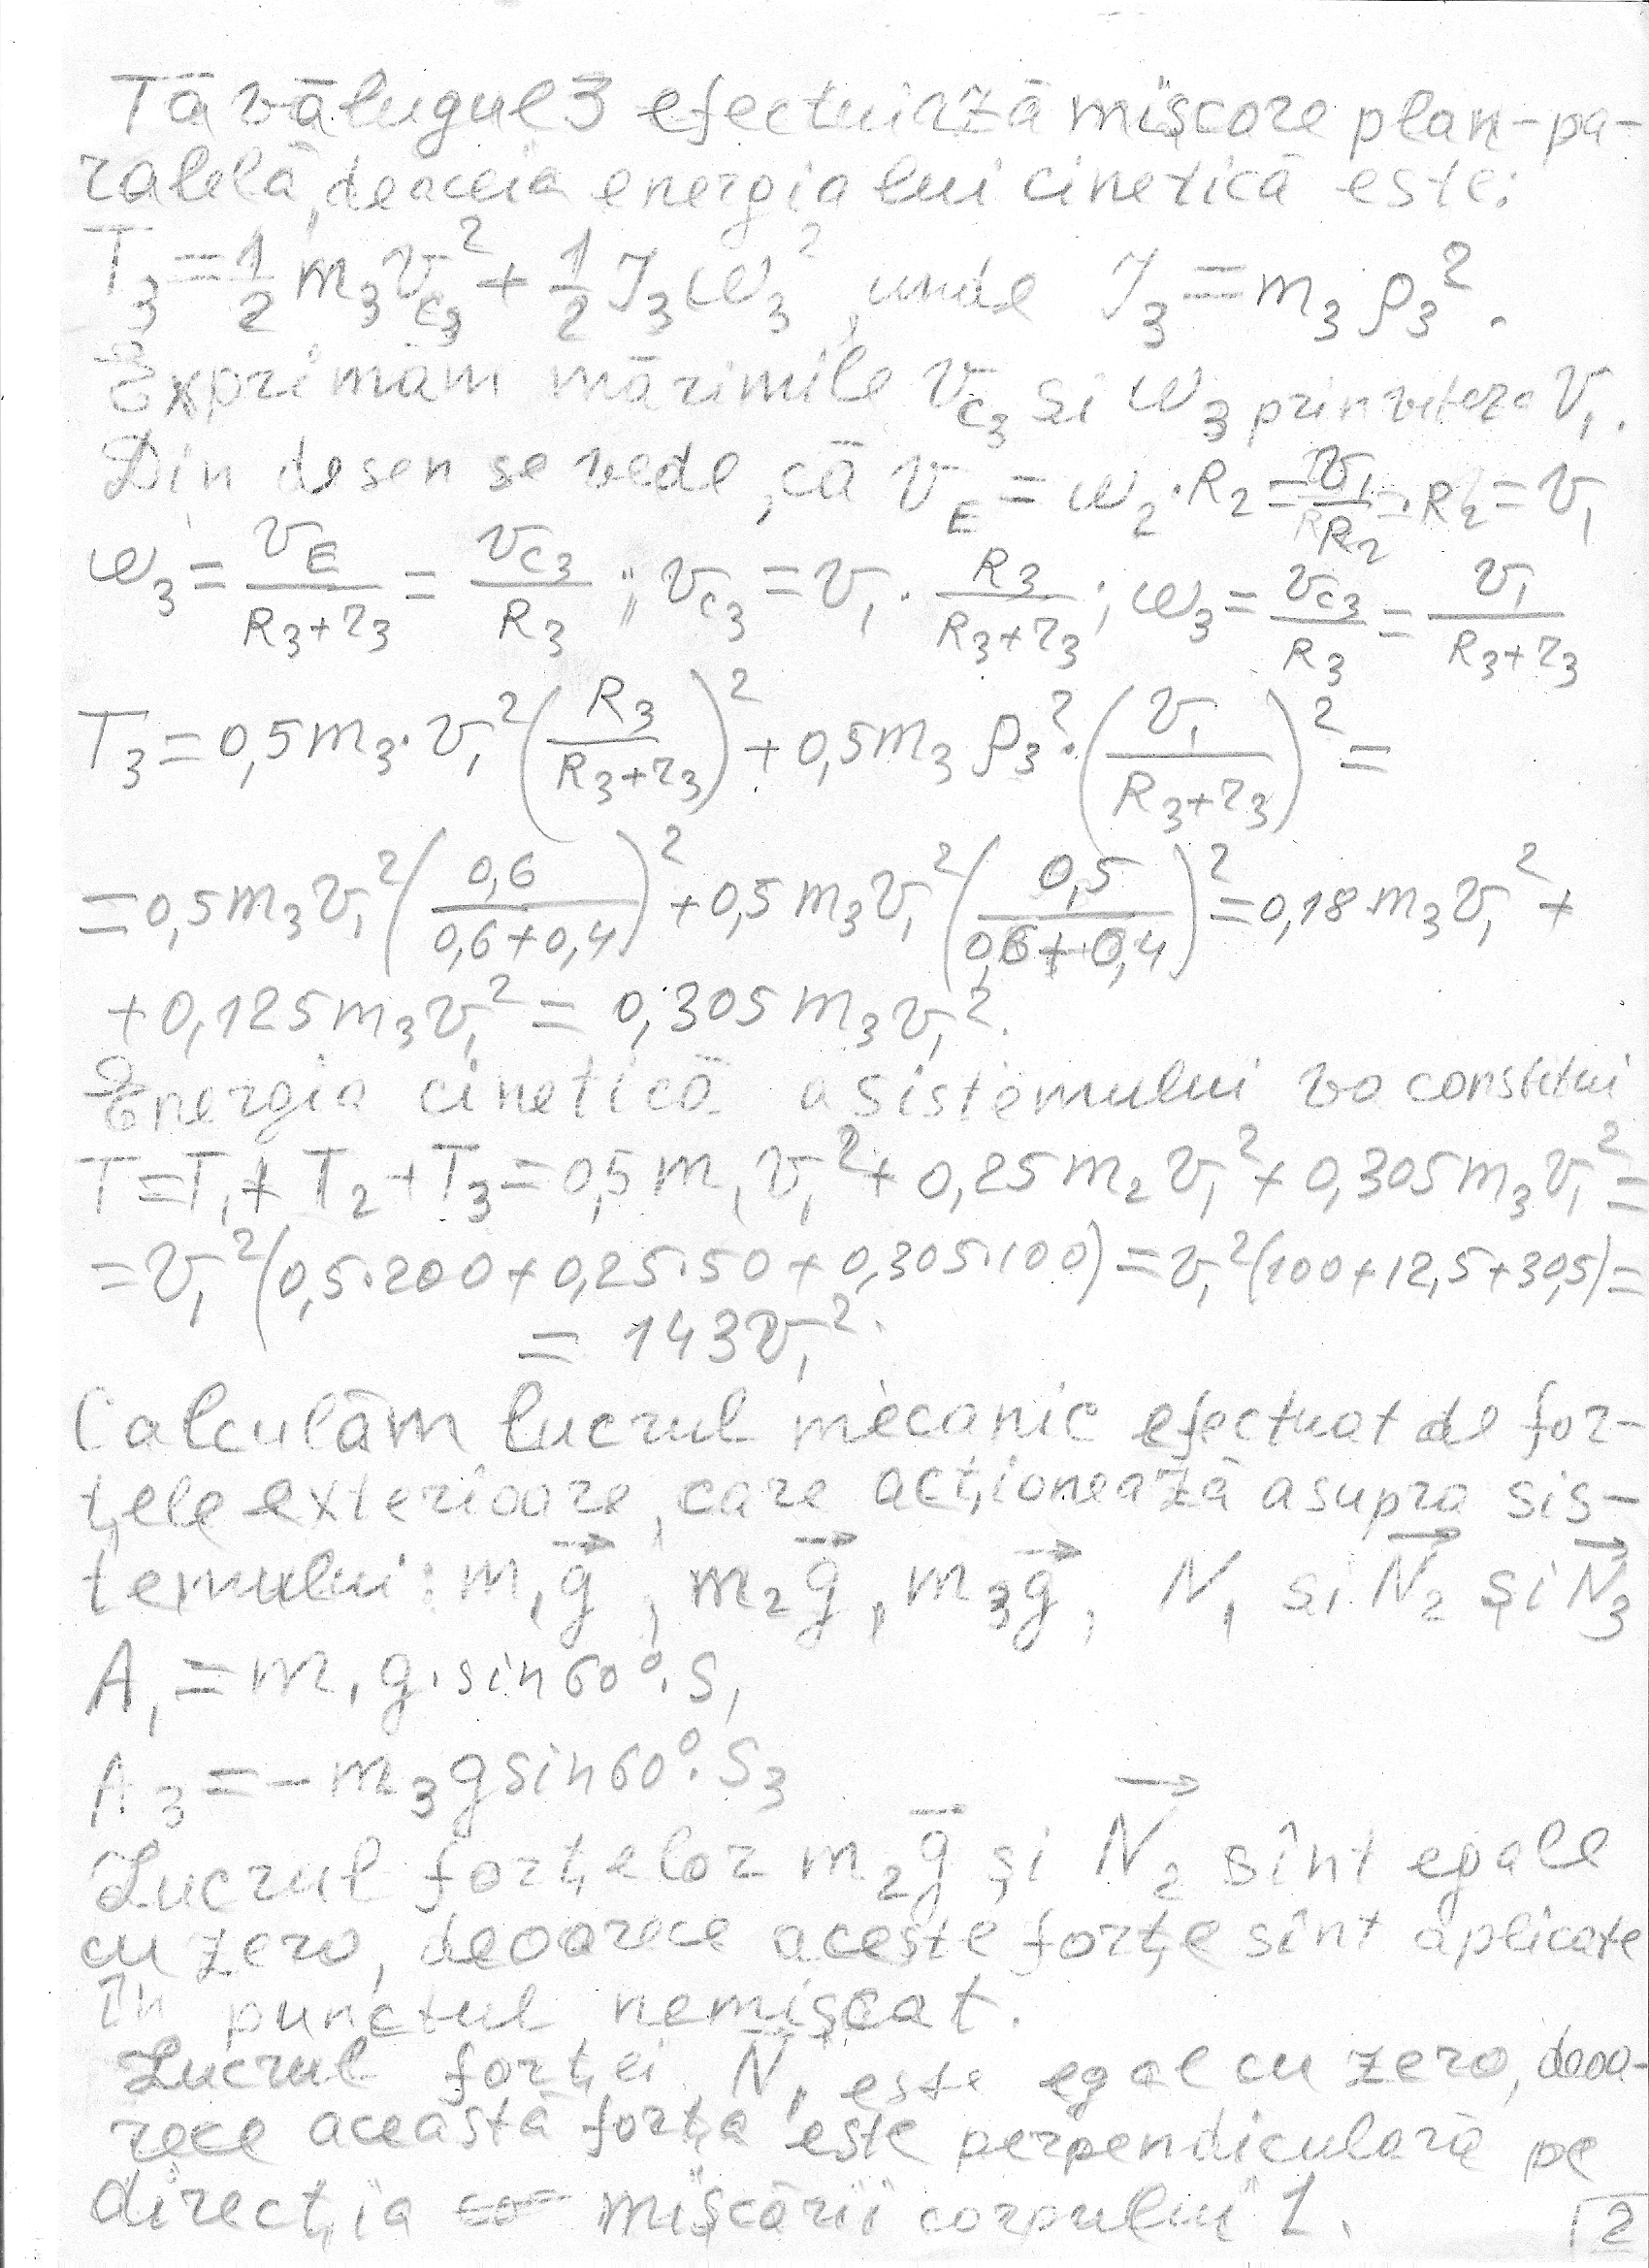 Tăvălugul 3 efectuiază mișcare plan-pa-
ralelă, deaceia energia lui cinetică este:
T₃ = 1/2 m₃ v_C₃² + 1/2 J₃ ω₃², unde J₃ = m₃ ρ₃².
Exprimăm mărimile v_C₃ si ω₃ prin viteza v₁.
Din desen se vede, că v_E = ω₂·R₂ = v₁/R₂ · R₂ = v₁
ω₃ = v_E/(R₃+r₃) = v_C₃/R₃ ; v_C₃ = v₁ · R₃/(R₃+r₃) ; ω₃ = v_C₃/R₃ = v₁/(R₃+r₃)
T₃ = 0,5m₃·v₁² (R₃/(R₃+r₃))² + 0,5m₃ρ₃²·(v₁/(R₃+r₃))² =
= 0,5m₃v₁² (0,6/(0,6+0,4))² + 0,5m₃v₁² (0,5/(0,6+0,4))² = 0,18m₃v₁² +
+ 0,125m₃v₁² = 0,305m₃v₁².
Energia cinetică a sistemului va constitui
T = T₁ + T₂ + T₃ = 0,5m₁v₁² + 0,25m₂v₁² + 0,305m₃v₁² =
= v₁²(0,5·200 + 0,25·50 + 0,305·100) = v₁²(100+12,5+30,5) =
= 143v₁².
Calculăm lucrul mecanic efectuat de for-
țele exterioare, care acționează asupra sis-
temului: m₁g⃗, m₂g⃗, m₃g⃗, N₁ si N⃗₂ și N⃗₃
A₁ = m₁g·sin60°·S₁
A₃ = -m₃gsin60°·S₃
Lucrul forțelor m₂g⃗ și N⃗₂ sînt egale
cu zero, deoarece aceste forțe sînt aplicate
în punctul nemișcat.
Lucrul forței N⃗₁ este egal cu zero, deoa-
rece această forța este perpendiculară pe
direcția mișcării corpului 1.
2